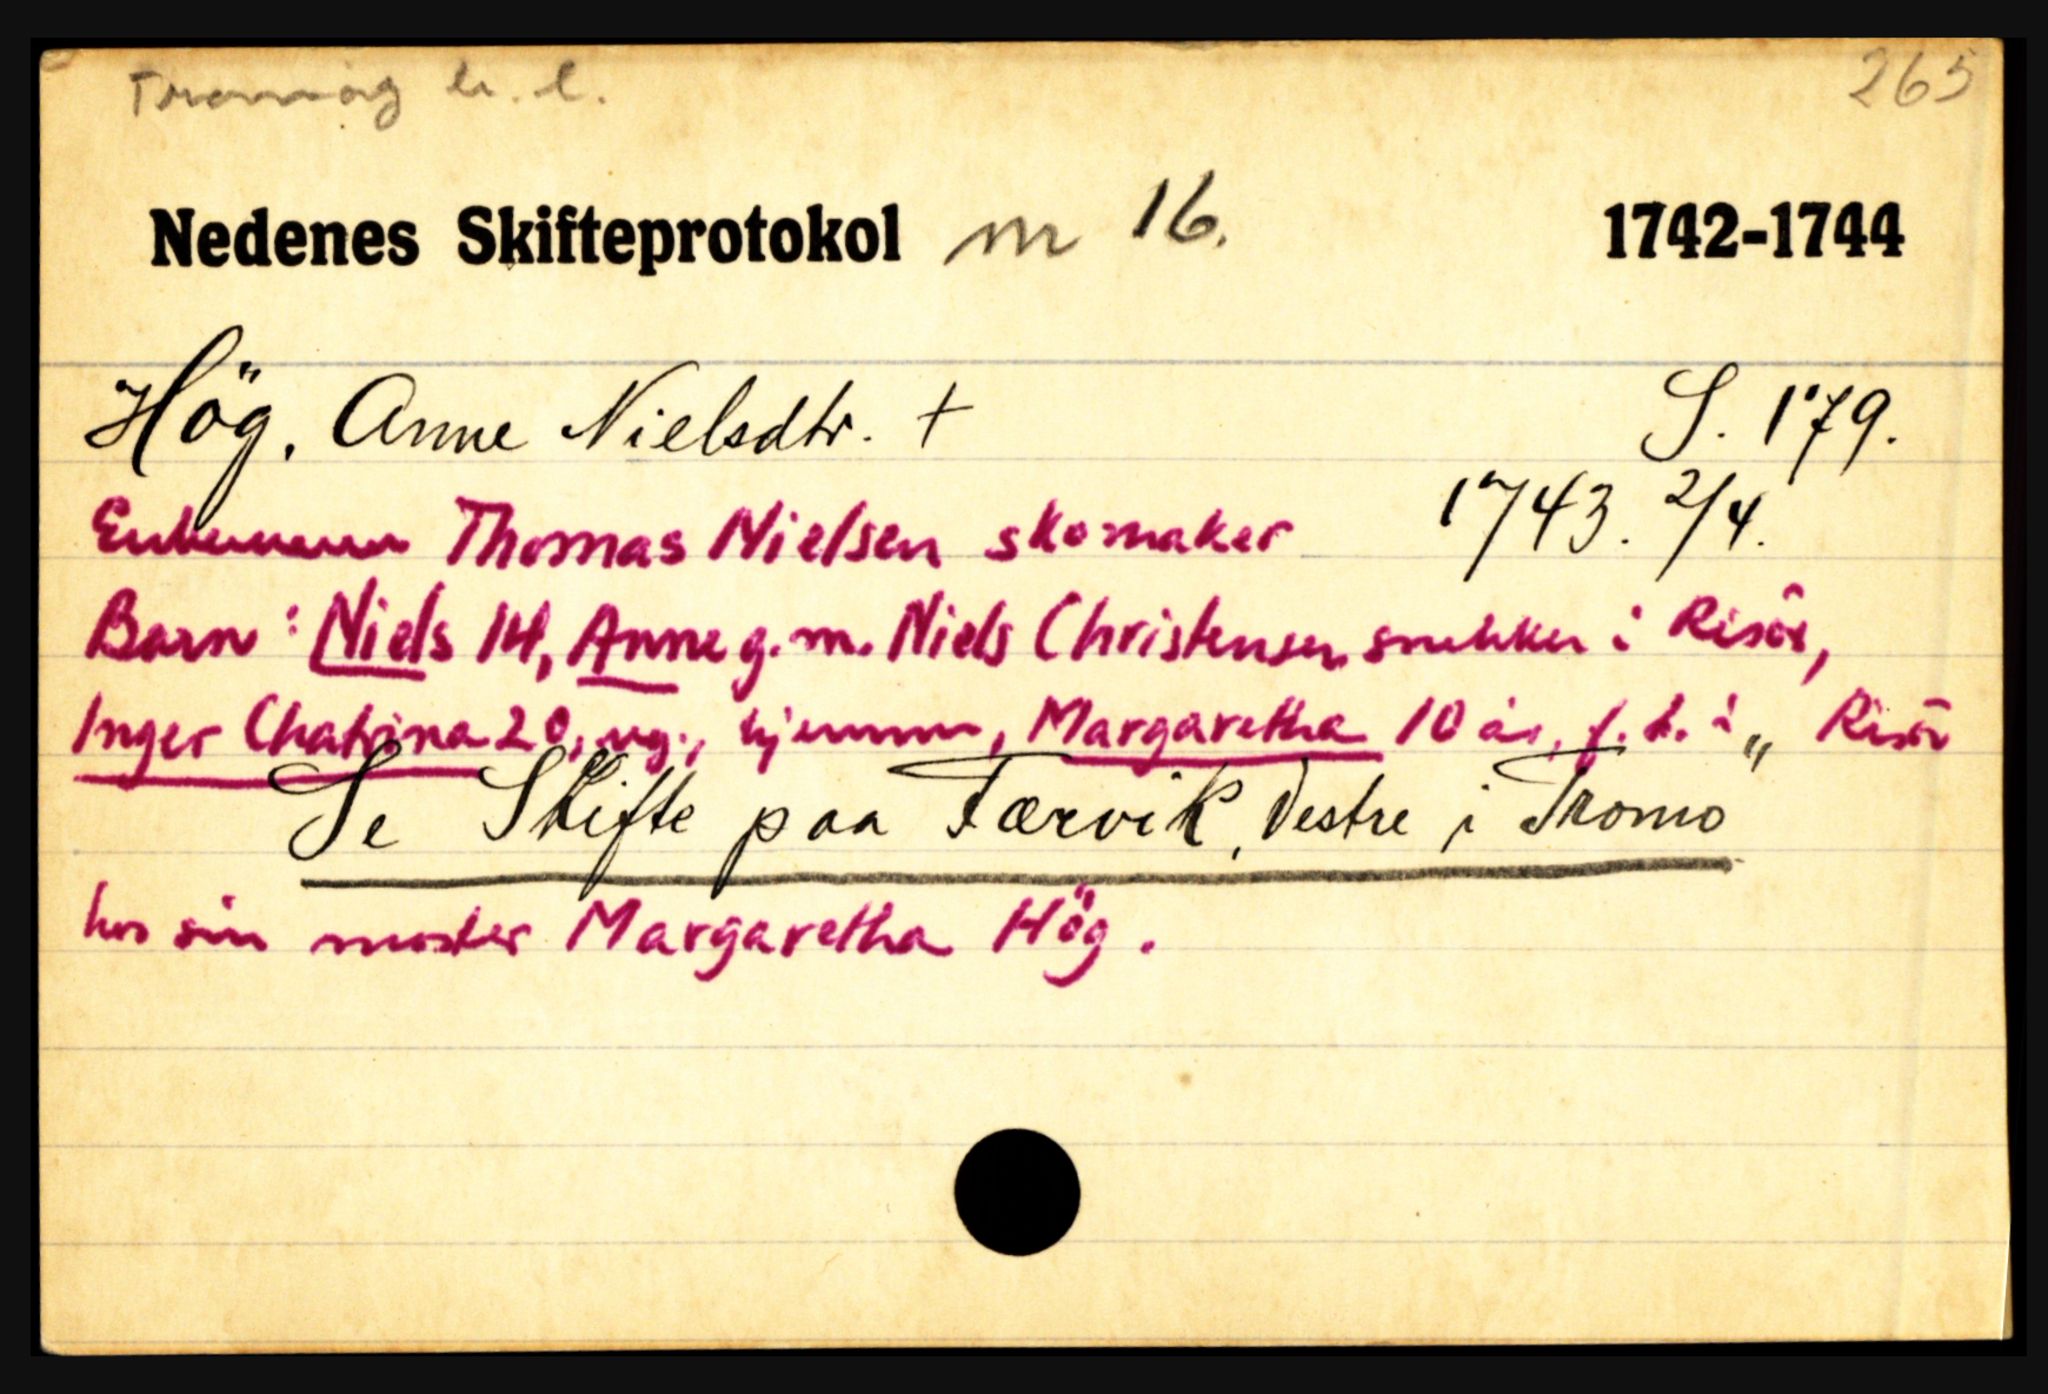 265
Nedenes Skifteprotokol nr 16. 1742-1744
Hög, Anne Nielsdtr. † S. 179.
Enkemann Thomas Nielsen skomaker 1743. 2/4.
Barn: Niels 14, Anne g. m. Niels Christensen snekker i Risör,
Inger Chatrina 20, ug., hjemme, Margaretha 10 år, f. t. i „ Risör
Se Skifte paa Færvik, Vestre i Tromö
hos sin moster Margaretha Hög.